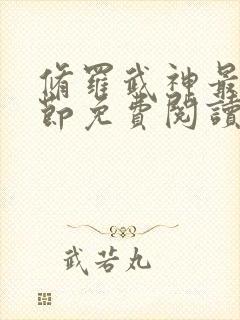 脩羅武神最
節免費閱讀
武若丸